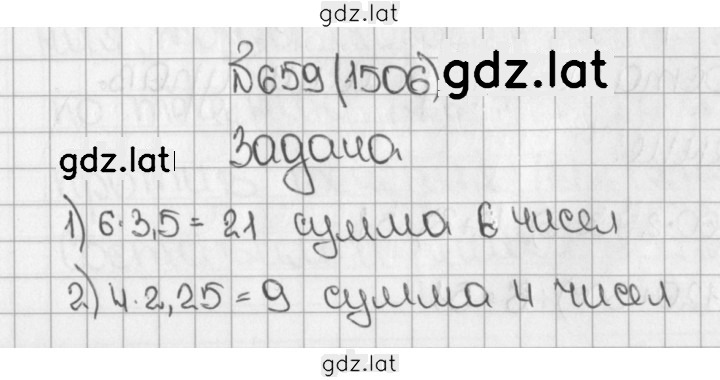 gdz.lat
№659 (1506) gdz.lat
gdz.lat Задача
1) 6·3,5 = 21 сумма 6 чисел
2) 4·2,25 = 9 сумма 4 чисел
gdz.lat